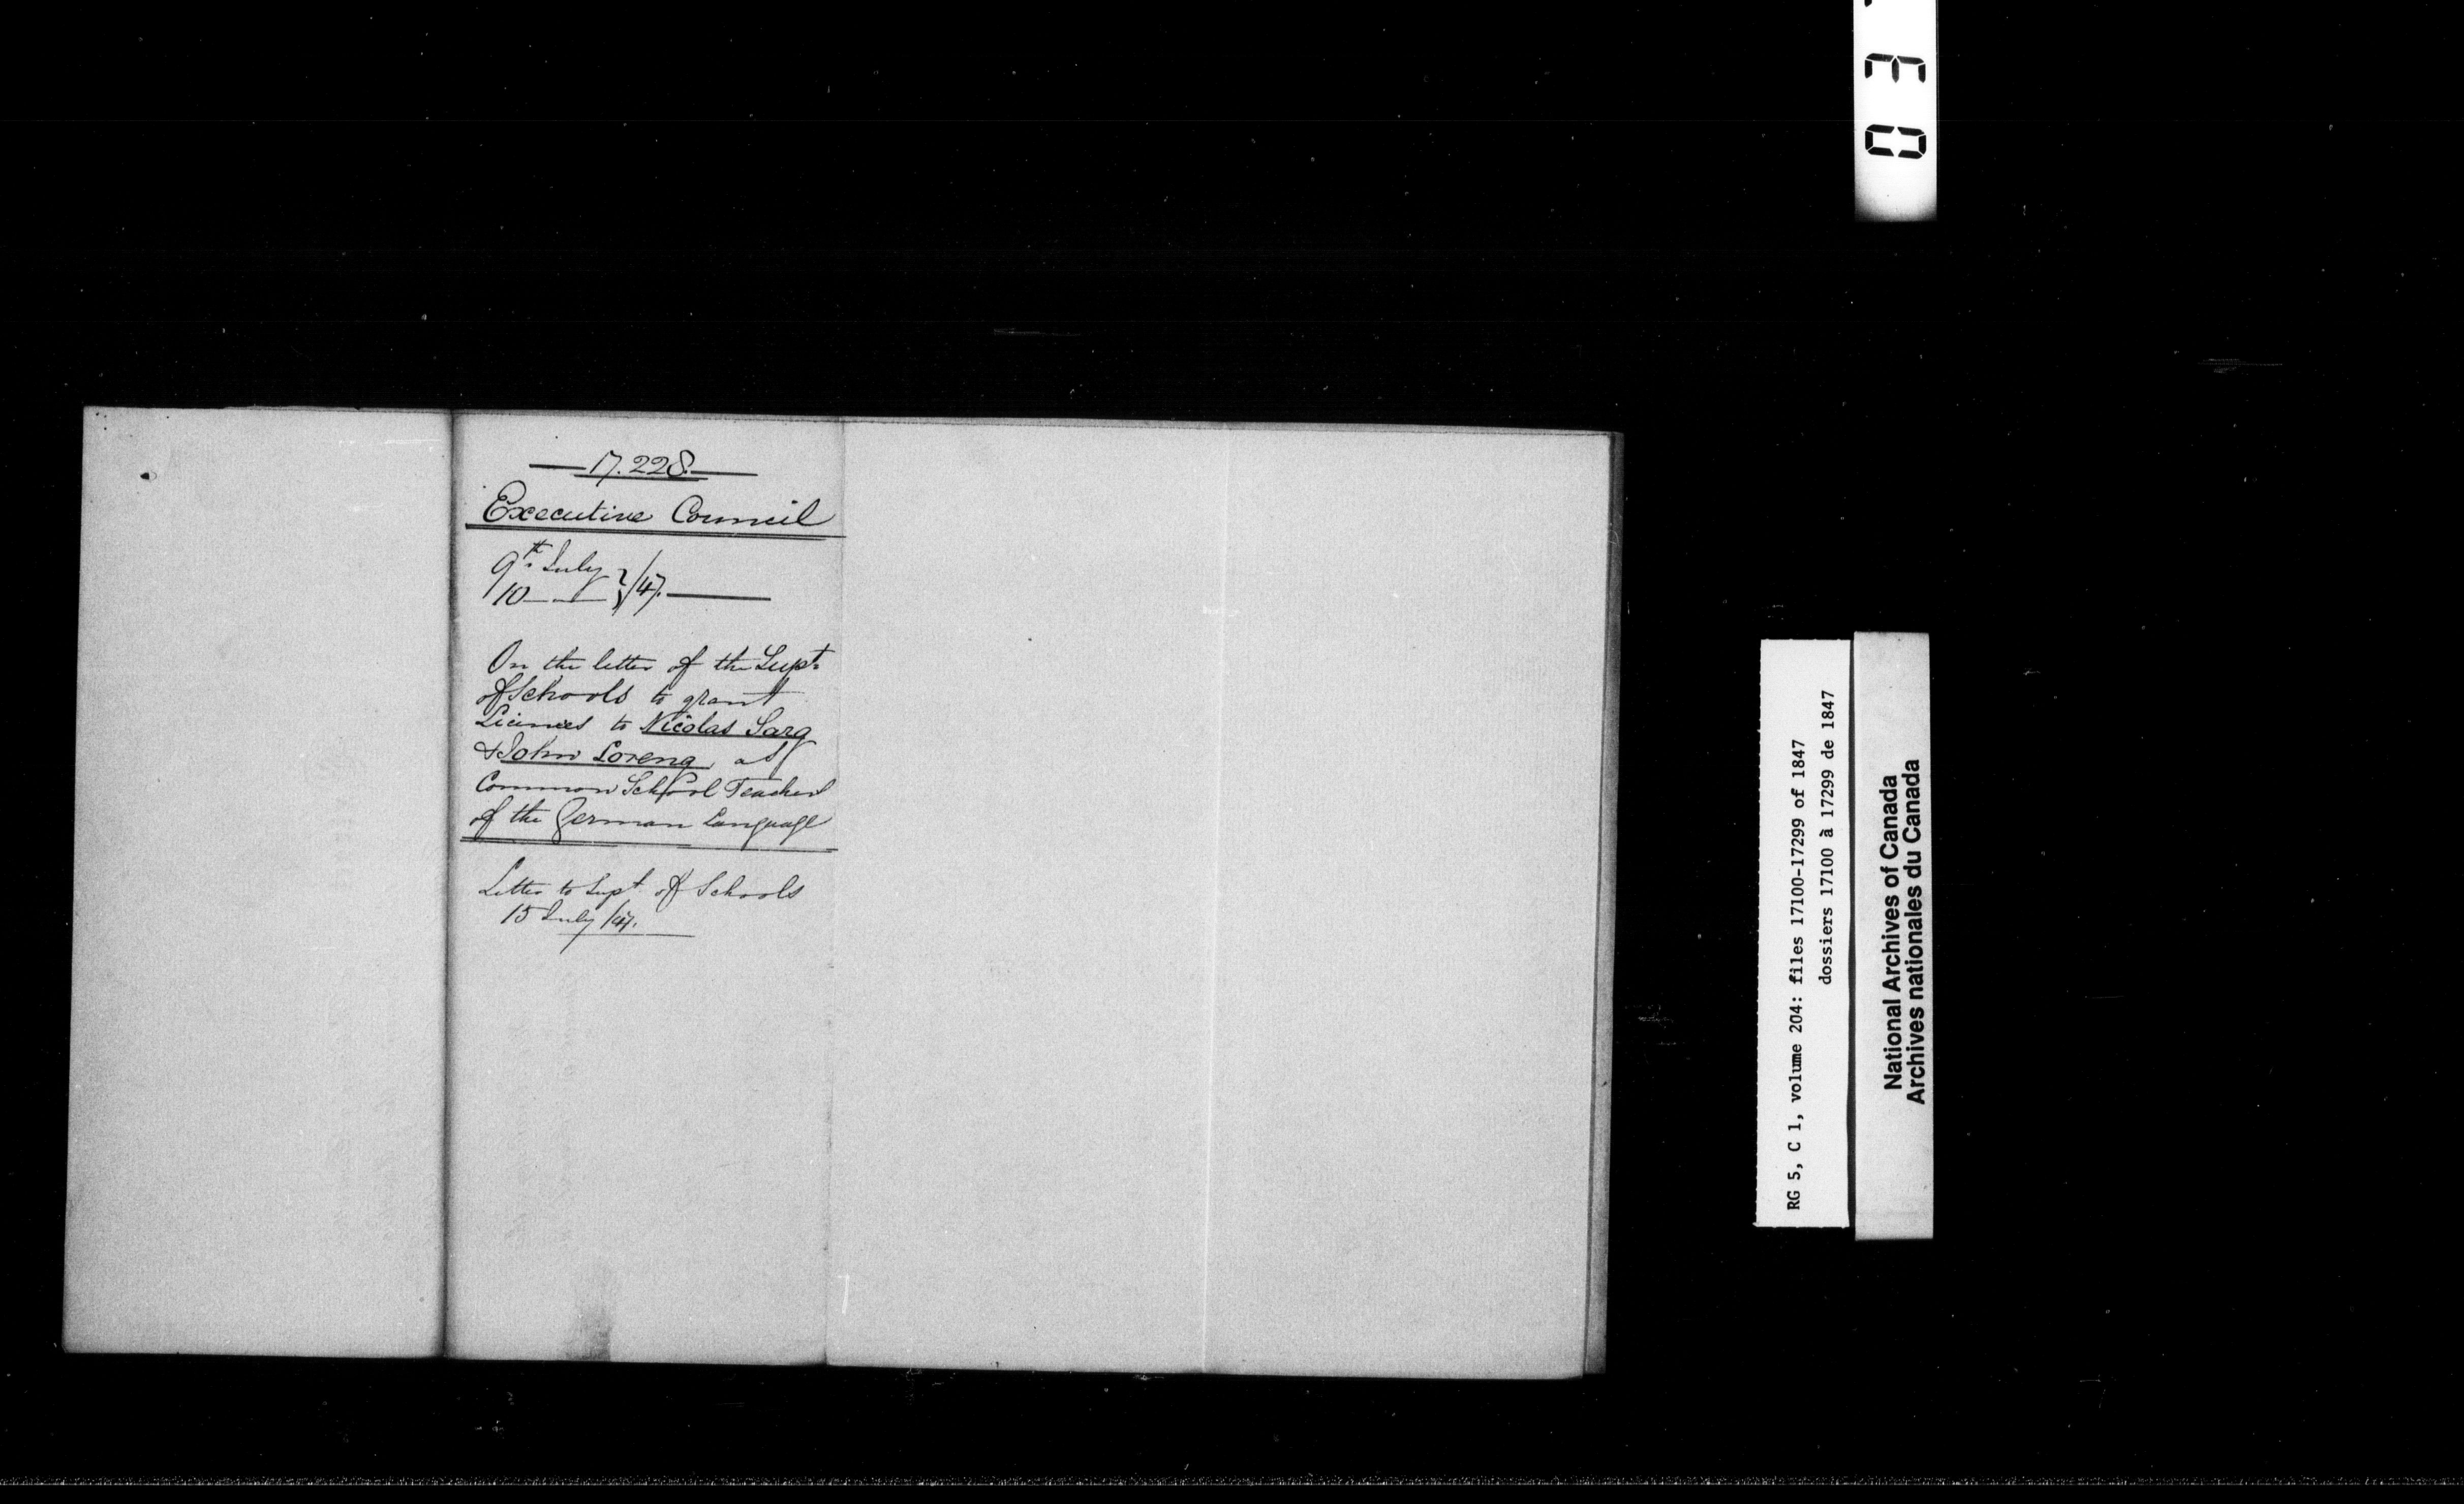 17.228.
Executive Council
9th July
10 — — } /47.
On the letter of the Supt.
of Schools to grant
Licenses to Nicolas Sarg
& John Loreng, as
Common School Teachers
of the German Language
Letter to Supt. of Schools
15 July /47.
03
RG 5, C 1, volume 204: files 17100-17299 of 1847
dossiers 17100 à 17299 de 1847
National Archives of Canada
Archives nationales du Canada